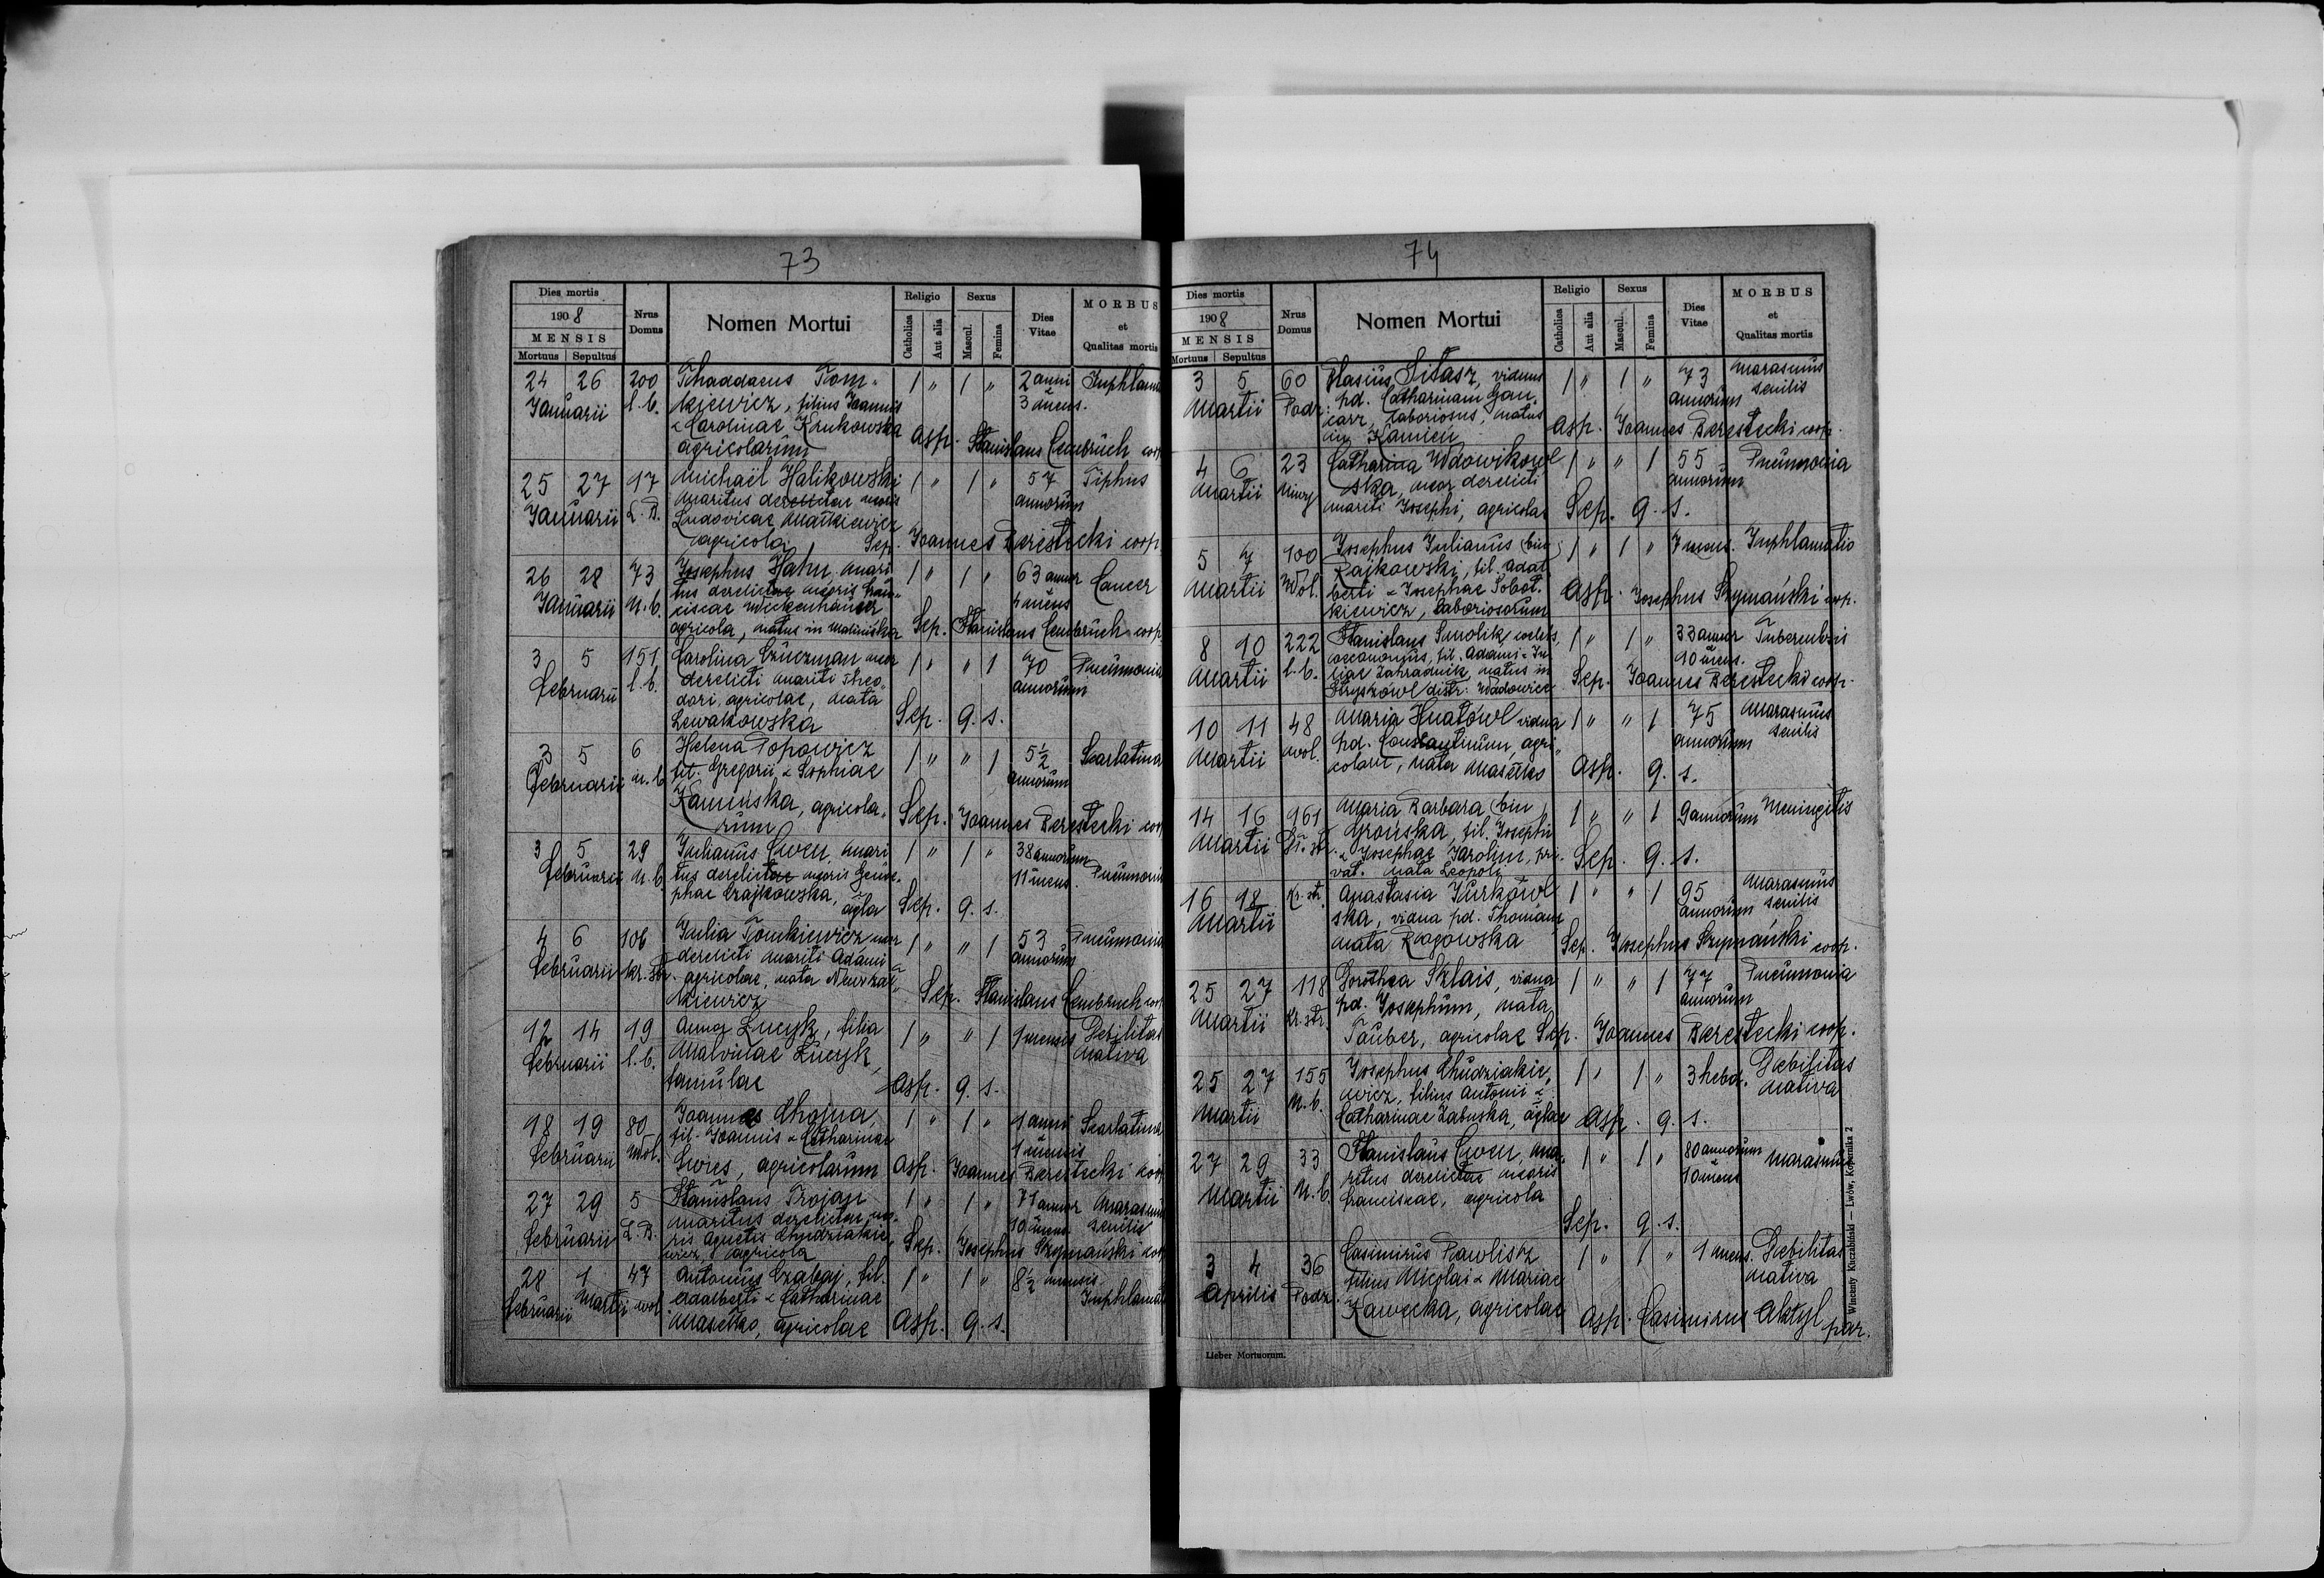 73
Dies mortis
1908
MENSIS
Mortuus Sepultus
Nrus Domus
Nomen Mortui
Religio
Catholica
Aut alia
Sexus
Mascul.
Femina
Dies Vitae
MORBUS
et
Qualitas mortis
24 26 200 Thaddaeus Tom- 1 " 1 " 2 anni Inphlama
Januarii l. b. kiewicz, filius Joannis 3 mens.
& Carolinae Krukowska
agricolarum Asp. Stanislaus Cembruch coop
25 27 17 Michaël Halikowski 1 " 1 " 57 Tiphus
Januarii L. B. maritus derelictae uxoris annorum
Ludovicae Mackiewicz
agricola Sep. Joannes Berestecki coop
26 28 73 Josephus Hahn, mari 1 " 1 " 63 annor Cancer
Januarii M. b. tus derelictae uxoris Fran- mens
ciscae Weckenhauser
agricola, natus in Sep. Stanislaus Cembruch coop
3 5 151 Carolina uxor 1 " " 1 70 Pneumonia
Februarii l. b. derelicti mariti Theo- annorum
dori, agricolae, nata
Lewakowska Sep. q. s.
3 5 6 Helena Popowicz 1 " " 1 5½ Scarlatina
Februarii M. b. fil. Gregorii & Sophiae annorum
Kamińska, agricola-
rum Sep. Joannes Berestecki coop
3 5 29 Julianus Cwen, mari 1 " 1 " 38 annorum
Februarii M. b. tus derelictae uxoris Geno- 11 mens. Pneumonia
phae Czajkowska, agla Sep. q. s.
4 6 106 Julia Tomkiewicz uxor 1 " " 1 53 Pneumonia
Februarii Kr. str. derelicti mariti Adami annorum
agricolae, nata
kiewicz Sep. Stanislaus Cembruch coop
12 14 19 Anna Lucyk, filia 1 " " 1 1 mensis Debilitas
Februarii l. b. Malvinae Lucyk, nativa
famulae Asp. q. s.
18 19 80 Joannes Chojna, 1 " 1 " 1 anni Scarlatina
Februarii Wol. fil. Joannis & Catharinae 1 mensis
agricolarum Asp. Joannes Berestecki coop
27 29 5 Stanislaus Trojan 1 " 1 " 71 annor Marasmus
Februarii L. B. maritus derelictae uxo- 10 mens senilis
ris Agnetis Chudziakie-
wicz, agricola Sep. Josephus Szymański coop
28 1 47 Antonius Czabaj, fil. 1 " 1 " 8½ mensis
Februarii Martii wol. Adalberti & Catharinae Inphlamat
Masełko, agricolae Asp. q. s.
74
Dies mortis
1908
MENSIS
Mortuus Sepultus
Nrus Domus
Nomen Mortui
Religio
Catholica
Aut alia
Sexus
Mascul.
Femina
Dies Vitae
MORBUS
et
Qualitas mortis
3 5 60 Blasius Sitasz, viduus 1 " 1 " 73 Marasmus
Martii Podz. pd. Catharinam Gan- annorum senilis
carz, laboriosus, natus
in Kamień Asp. Joannes Berestecki coop.
4 6 23 Catharina Wdowikow 1 " " 1 55 Pneumonia
Martii ska, uxor derelicti annorum
mariti Josephi, agricolae Sep. q. s.
5 7 100 Josephus Julianus (bin) 1 " 1 " 7 mens. Inphlamatio
Martii Wol. Rajkowski, fil. Adal
berti & Josephae Sobot-
kiewicz, laboriosorum Asp. Josephus Szymański coop.
8 10 222 Stanislaus Smolik coelebs, 1 " 1 " 33 annor Tuberculosis
Martii l. b. oeconomus, fil. Adami & Ju- 10 mens.
liae Zahradnik, natus in
Stryszów distr. Wadowice Sep. Joannes Berestecki coop.
10 11 48 Maria Hnatów vidua 1 " " 1 75 Marasmus
Martii wol. pd. Constantinum, agri- annorum senilis
colam, nata Asp. q. s.
14 16 961 Maria Barbara (bin) 1 " " 1 9 annorum Meningitis
Martii Grońska, fil. Josephi
& Josephae Jarolim, pri-
vat. nata Leopoli Sep. q. s.
16 18 Kr. str. Anastasia Kurków 1 " " 1 95 Marasmus
Martii ska, vidua pd. Thomam annorum senilis
nata Rogowska Sep. Josephus Szymański coop.
25 27 118 Dorothea Sklais, vidua 1 " " 1 77 Pneumonia
Martii Kr. str. pd. Josephum, nata annorum
Tauber, agricolae Sep. Joannes Berestecki coop.
25 27 155 Josephus Chudziakie- 1 " 1 " 3 hebd. Debilitas
Martii M. b. wicz, filius Antonii & nativa
Catharinae Zabuska, aglae Asp. q. s.
27 29 33 Stanislaus Cwen, ma- 1 " 1 " 80 annorum Marasmus
Martii M. b. ritus derelictae uxoris 10 mens
Franciscae, agricola
Sep. q. s.
3 4 36 Casimirus Pawlisz 1 " 1 " 1 mens. Debilitas
Aprilis Podz. filius Nicolai & Mariae nativa
Kawecka, agricolae Asp. Casimirus Aktyl par.
Lieber Mortuorum.
Wincenty Kuczabiński — Lwów, Kopernika 2